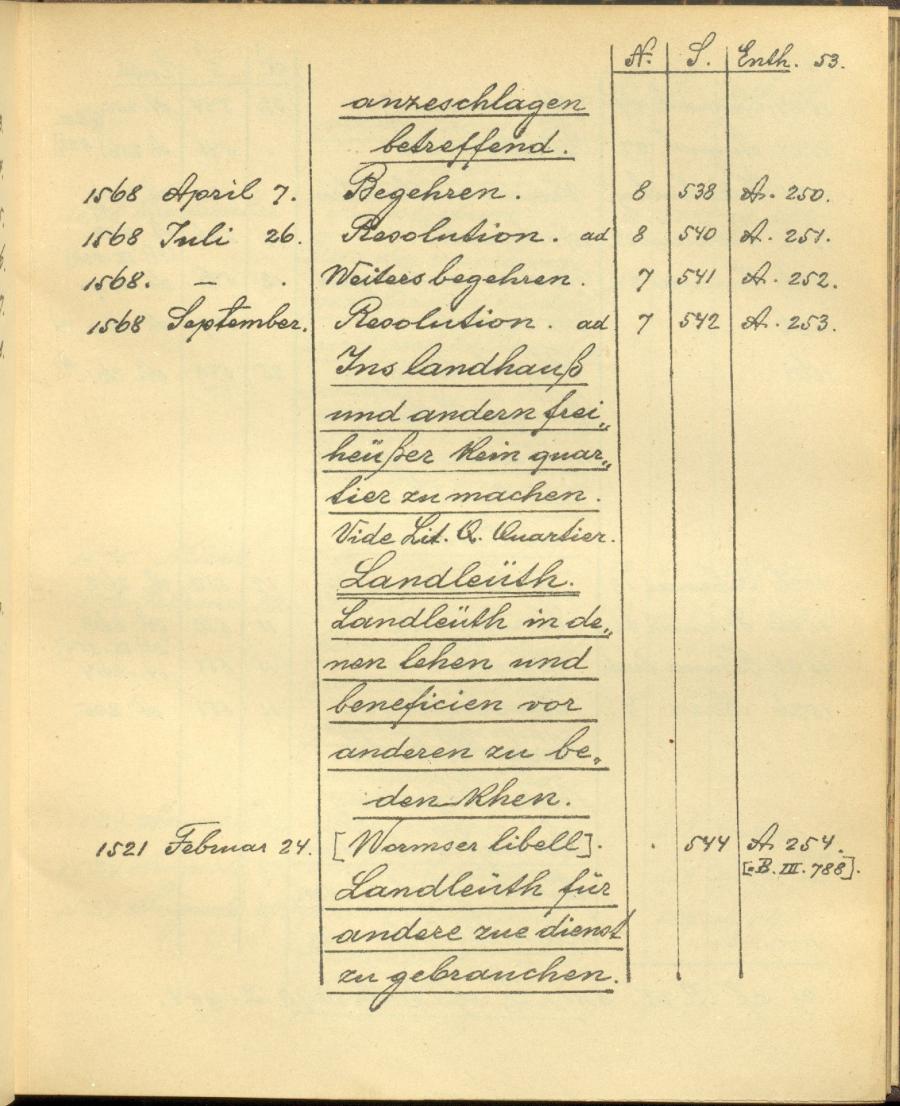 N. S. Enth. 53.
anzeschlagen
betreffend.
1568 April 7. Begehren. 8 538 A. 250.
1568 Juli 26. Resolution. ad 8 540 A. 251.
1568. — . Weitersbegehren. 7 541 A. 252.
1568 September. Resolution. ad 7 542 A. 253.
Ins landhauß
und andern frei„
heüßer kein quar„
tier zu machen.
Vide Lit. Q. Quartier.
Landleüth.
Landleüth in de„
nen lehen und
beneficien vor
anderen zu be„
denkhen.
1521 Februar 24. [Wormser libell]. . 544 A. 254.
[B. III. 788].
Landleüth für
andere zue dienst
zu gebrauchen.